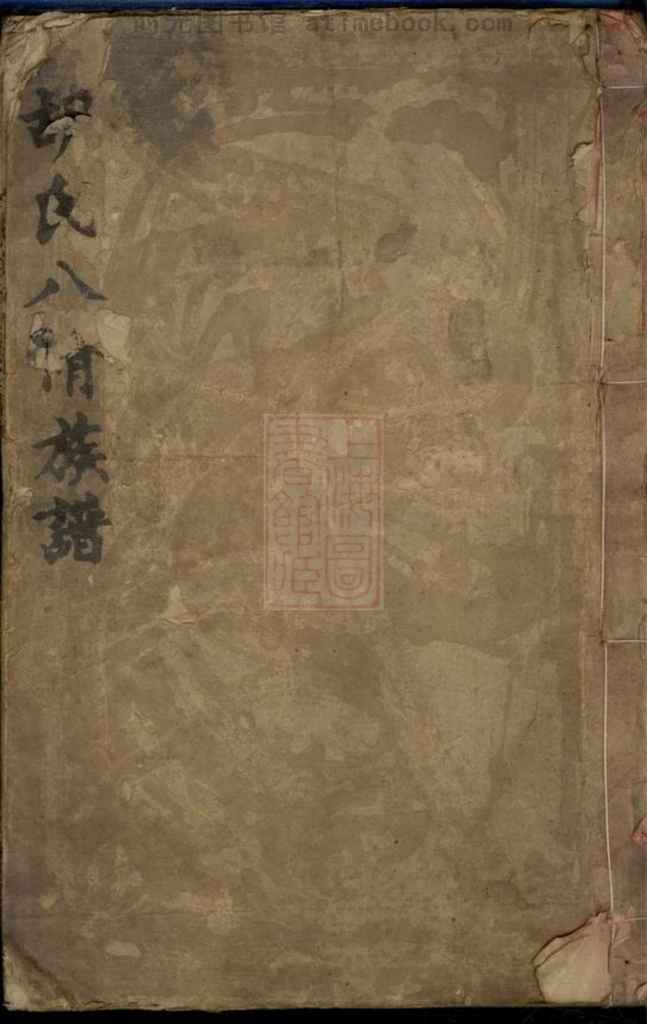 时光图书馆 atimebook.com
胡氏八脩族譜
上海圖
書館藏